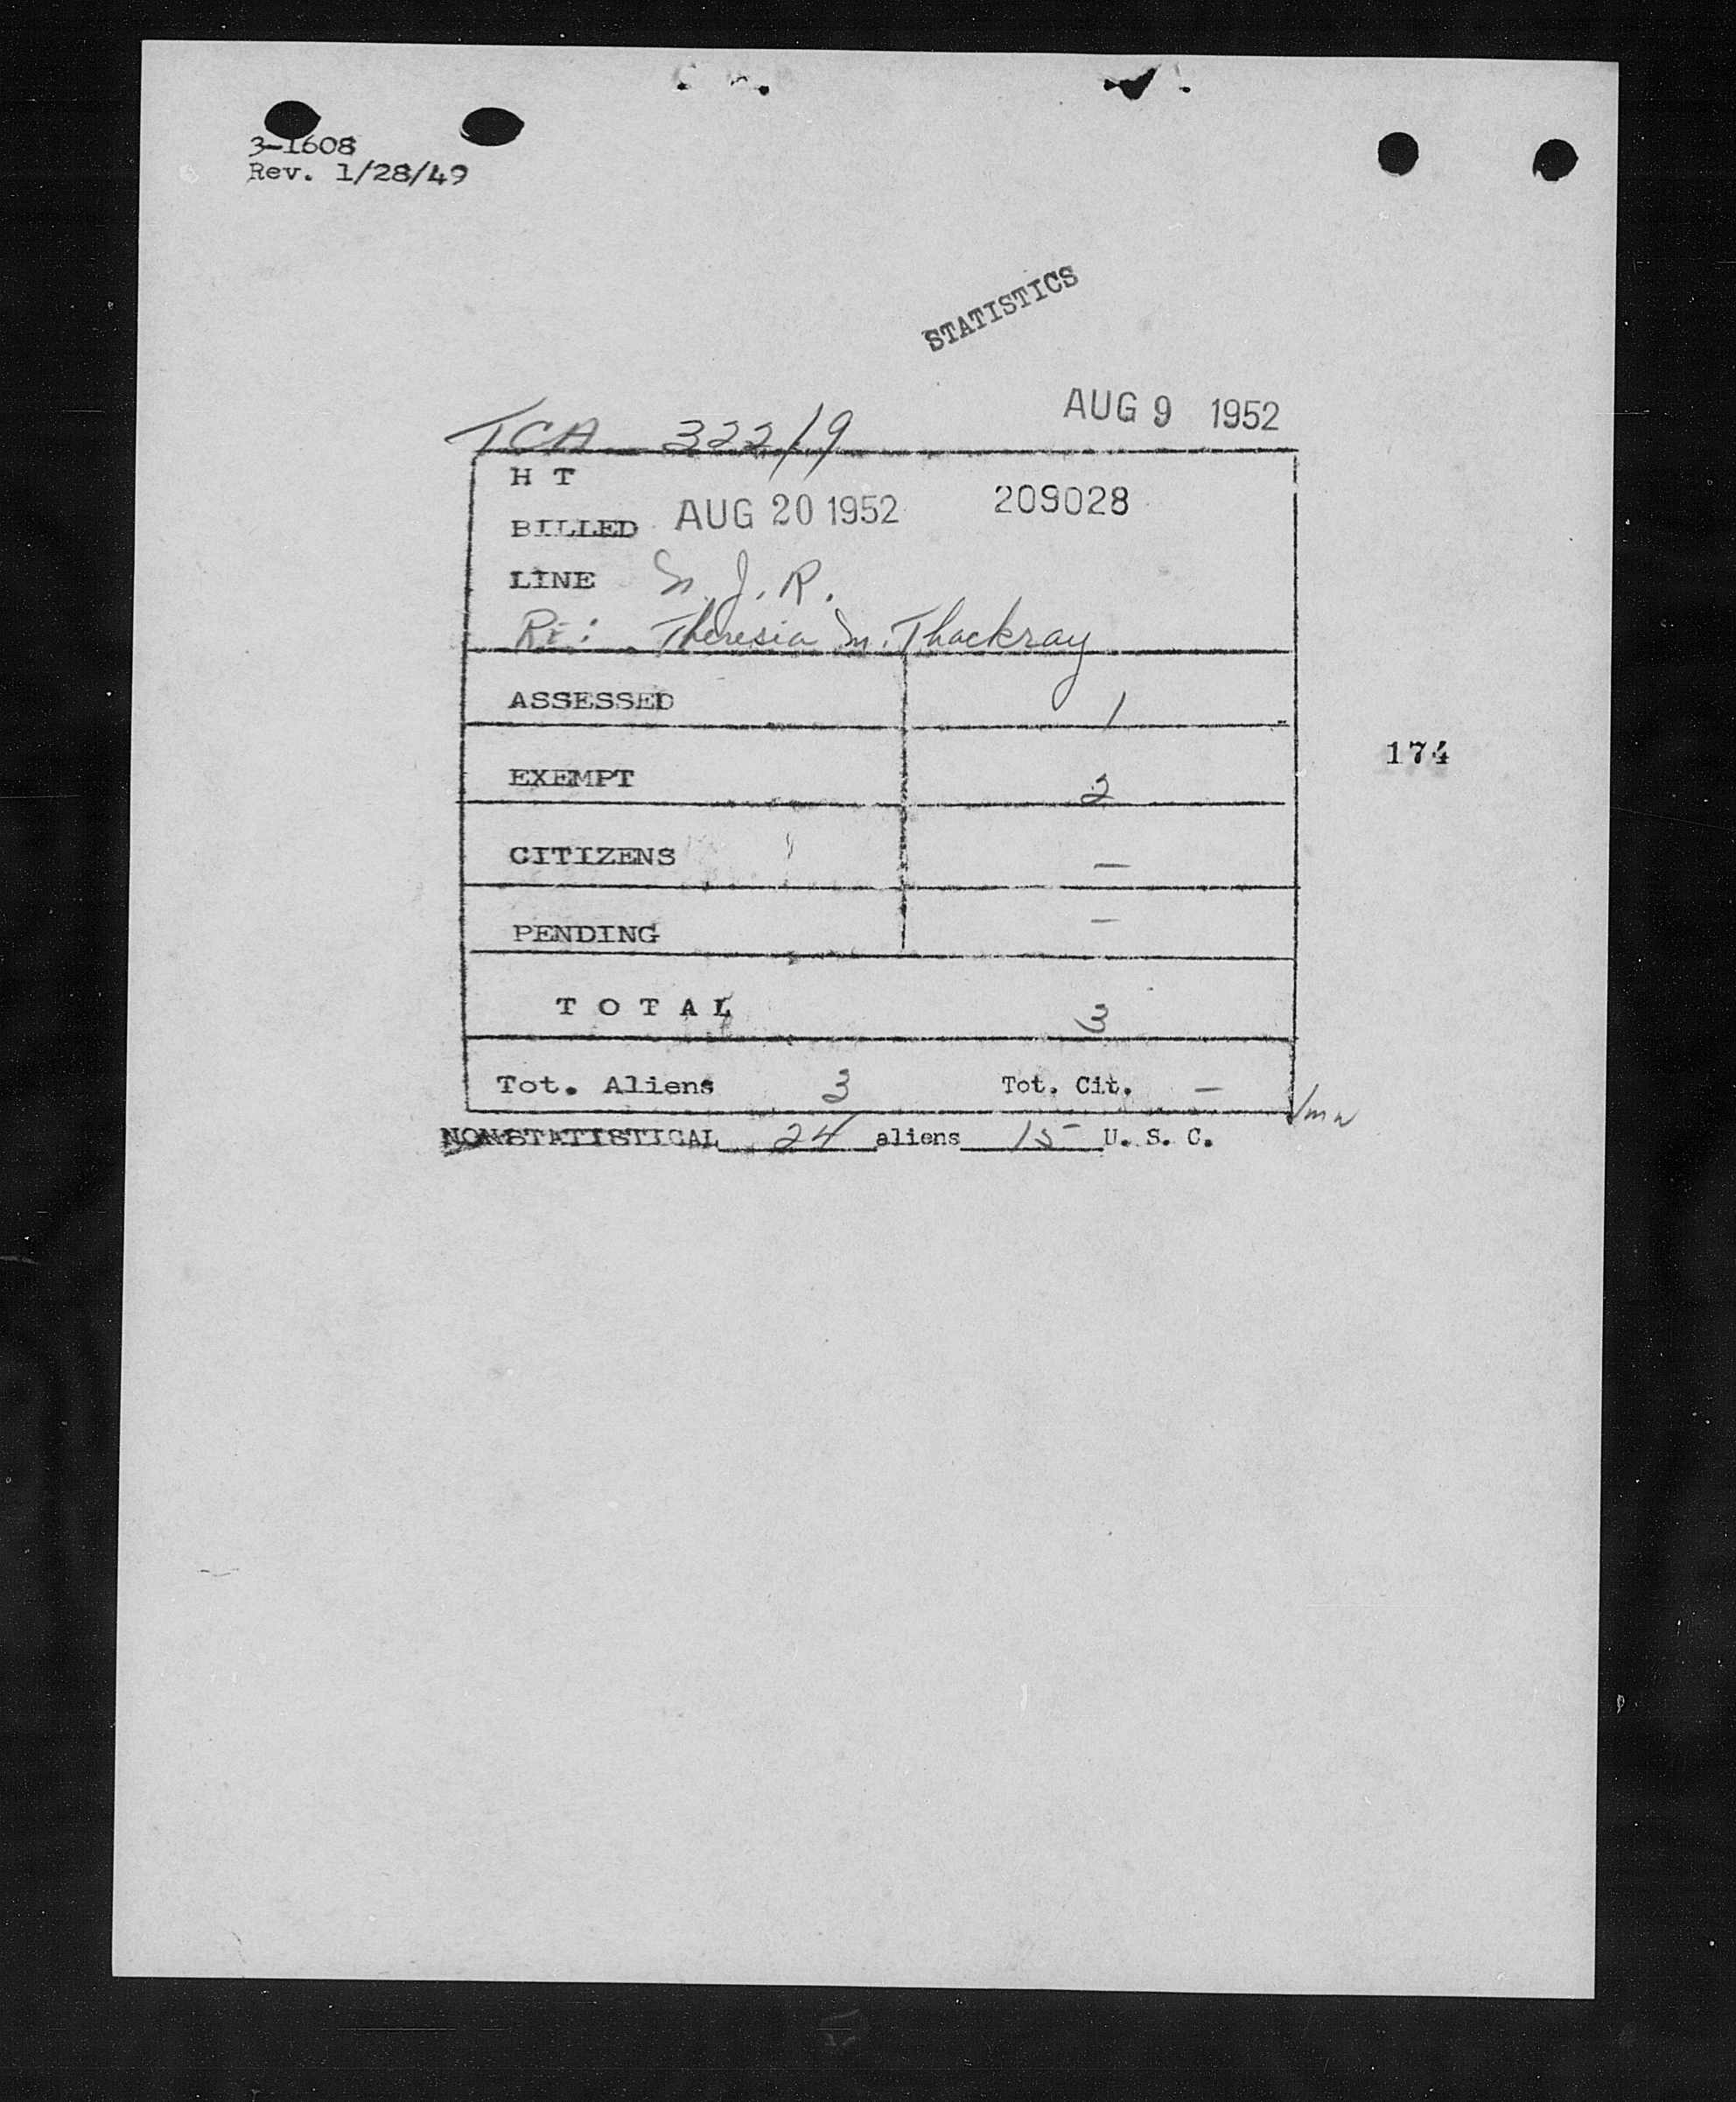 3-1608
Rev. 1/28/49
STATISTICS
AUG 9 1952
TCA 322/9
H T
BILLED AUG 20 1952 209028
LINE J. R.
Re: Theresia M. Thackray
ASSESSED 1
174
EXEMPT 2
CITIZENS —
PENDING —
T O T A L 3
Tot. Aliens 3 Tot. Cit. —
NON-STATISTICAL 24 aliens 15 U. S. C.